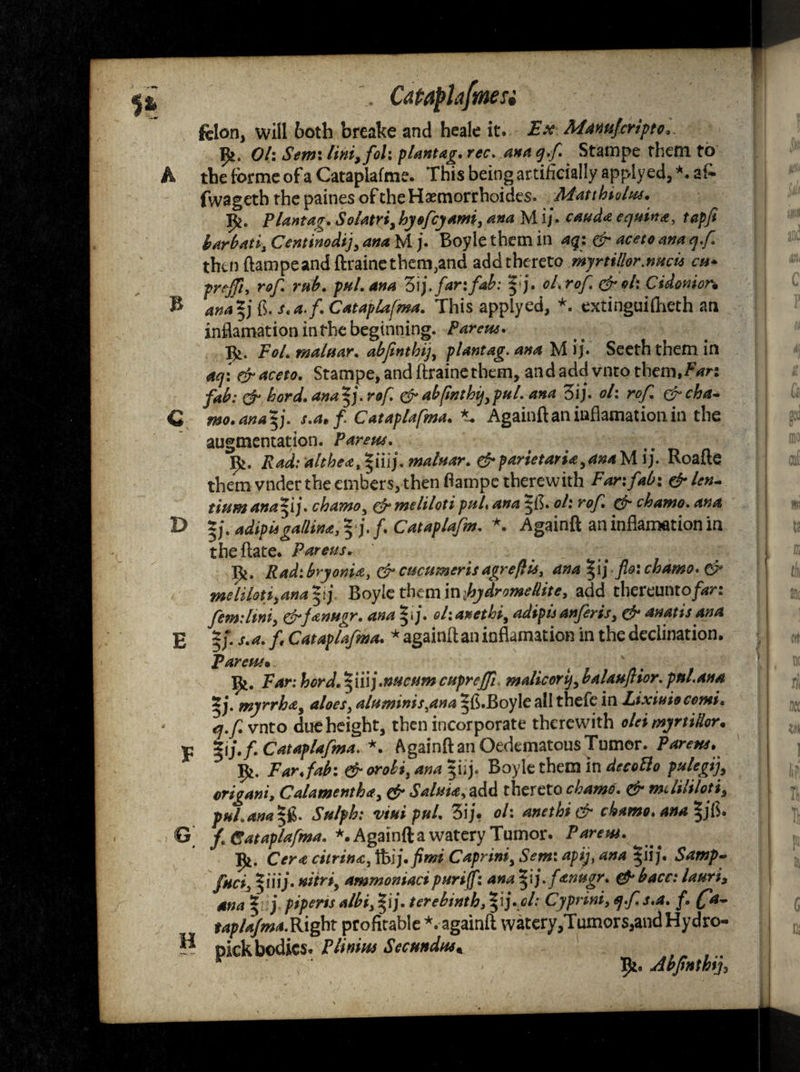 52 Cataplasmes.
felon, will both breake and heale it. Ex Manuscripto.
℞. Ol: Sem: lini, sol: plantag. rec. ana q.ſ. Stampe them to
A the forme of a Cataplaſme. This being artificially applyed, *. aſ-
ſwageth the paines of the Hæmorrhoides. Matthiolus.
℞. Plantag. Solatri, hyoſcyami, ana M ij. caudæ equinæ, tapſi
barbati, Centinodij, ana M j. Boyle them in aq: & aceto ana q.ſ.
then ſtampe and ſtraine them, and add thereto myrtillor. nucis cu-
preſſi, roſ. rub. pul. ana ʒij. far: fab: ℥j. ol. roſ. & ol: Cidonior.
B ana ℥j ß. s.a. f. Cataplaſma. This applyed, *. extinguiſheth an
inflamation in the beginning. Pareus.
℞. Fol. maluar. abſinthij, plantag. ana M ij. Seeth them in
aq: & aceto. Stampe, and ſtraine them, and add vnto them, Far:
fab: & hord. ana ℥j. roſ. & abſinthij, pul. ana ʒij. ol: roſ. & cha-
C mo. ana ℥j. s.a. f. Cataplaſma. *. Againſt an inflamation in the
augmentation. Pareus.
℞. Rad: altheæ, ℥iiij. maluar. & parietariæ, ana M ij. Roaſte
them vnder the embers, then ſtampe therewith Far: fab: & len-
tium ana ℥ij. chamo, & meliloti pul. ana ℥ß. ol: roſ. & chamo. ana
D ℥j. adipis gallinæ, ℥j. f. Cataplaſm. *. Againſt an inflamation in
the ſtate. Pareus.
℞. Rad: bryoniæ, & cucumeris agreſtis, ana ℥ij. flo: chamo. &
meliloti, ana ℥ij. Boyle them in hydromellite, add thereunto far:
ſem: lini, & fænugr. ana ℥ij. ol: anethi, adipis anſeris, & anatis ana
E ℥ſ. s.a. f. Cataplaſma. * againſt an inflamation in the declination.
Pareus.
℞. Far: hord. ℥iiij. nucum cupreſſi, malicorij, balauſtior. pul. ana
℥j. myrrhæ, aloes, aluminis, ana ℥ß. Boyle all theſe in Lixiuio comi.
q.ſ. vnto due height, then incorporate therewith olei myrtillor.
F ℥ij. f. Cataplaſma. *. Againſt an Oedematous Tumor. Pareus.
℞. Far. fab: & orobi, ana ℥iij. Boyle them in decocto pulegij,
origani, Calamenthæ, & Saluiæ, add thereto chamo. & melililoti,
pul. ana ℥ß. Sulph: viui pul. ʒij. ol: anethi & chamo. ana ℥jß.
G f. Cataplaſma. *. Againſt a watery Tumor. Pareus.
℞. Ceræ citrinæ, ℔ij. fimi Caprini, Sem: apij, ana ℥iij. Samp-
ſuci, ℥iiij. nitri, ammoniaci puriff: ana ℥ij. fænugr. & bacc: lauri,
ana ℥j piperis albi, ℥ij. terebinth, ℥ij. ol: Cyprini, q.ſ. s.a. f. Ca-
taplaſma. Right profitable *. againſt watery, Tumors, and Hydro-
H pick bodies. Plinius Secundus.
℞. Abſinthij,